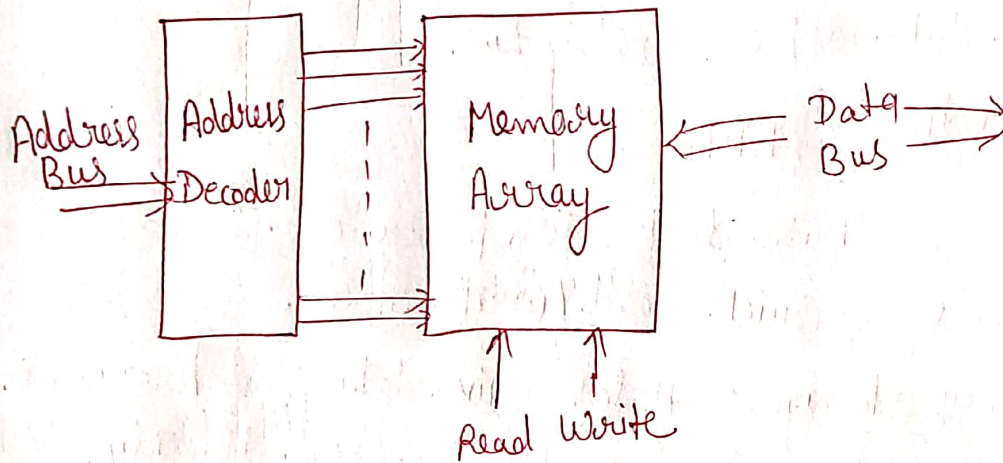 Address
Bus
Address
Decoder
Memory
Array
Data
Bus
Read Write